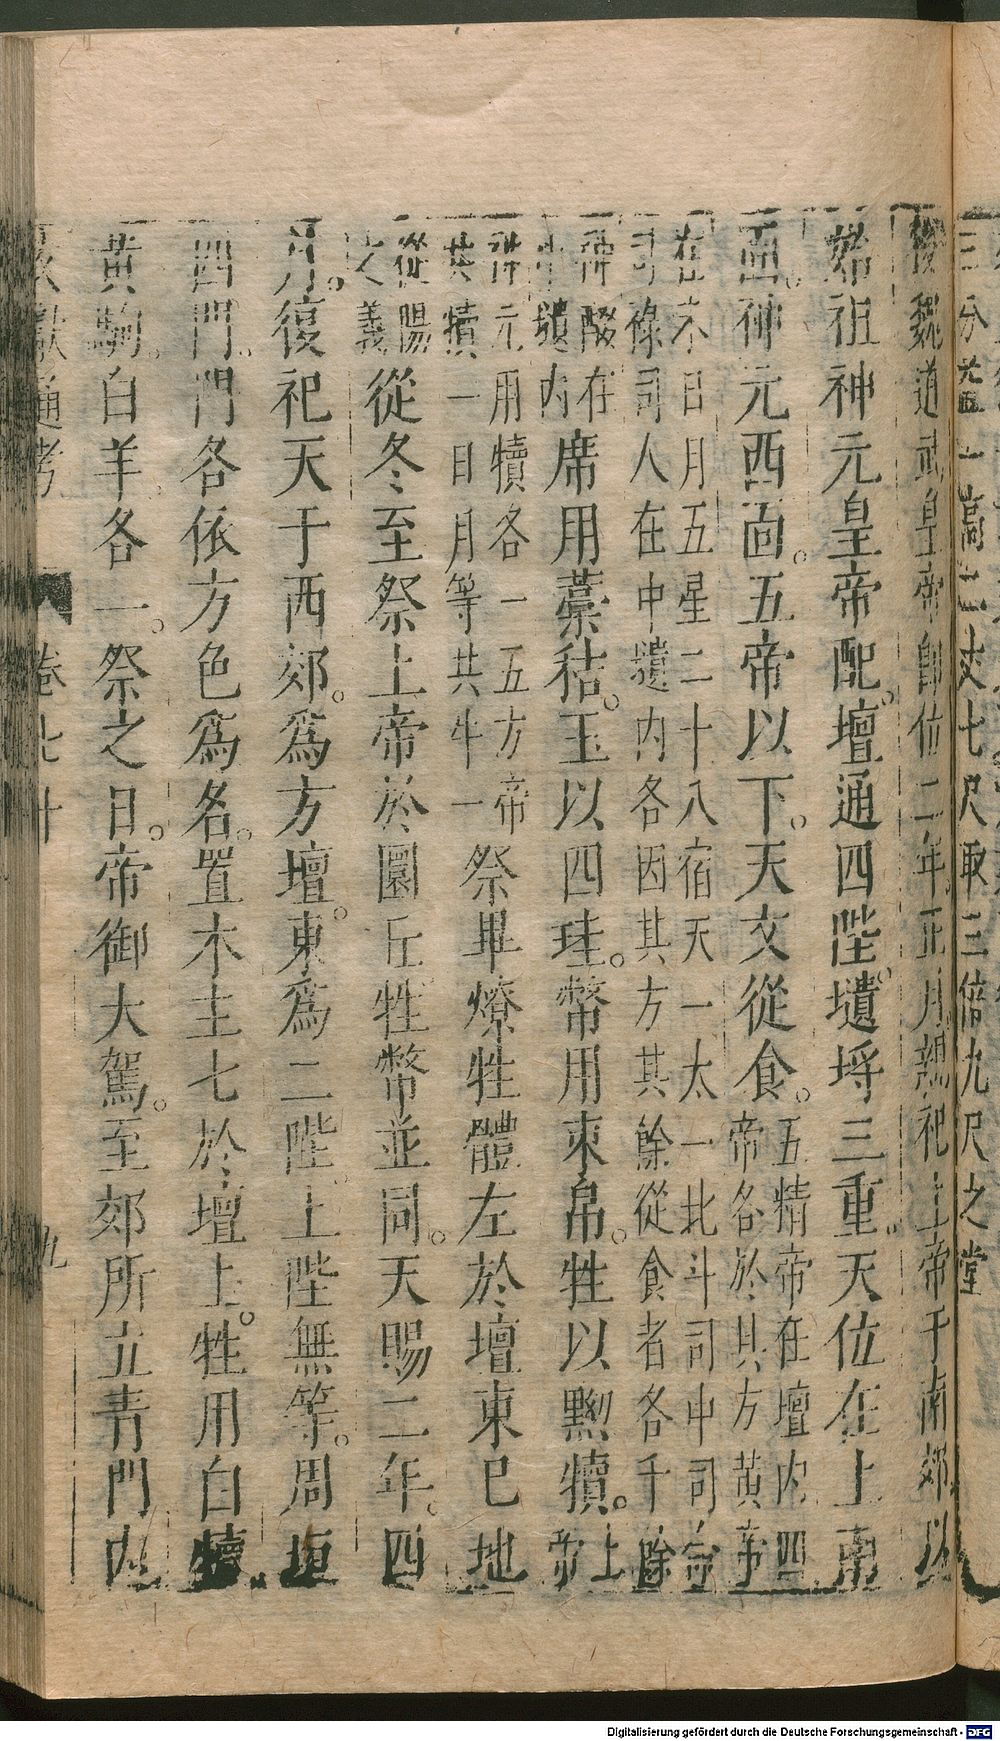 三分共一高二丈七尺取三倍九尺之堂
後魏道武皇帝卽位二年正月親祀上帝于南郊以
始祖神元皇帝配壇通四陛壝埓三重天位在上南
面神元西面五帝以下天文從食五精帝在壇內四
帝各於其方黃帝
在未日月五星二十八宿天一太一北斗司中司命
司祿司人在中壝內各因其方其餘從食者各千餘
神醊在
外壝內席用藁秸玉以四珪幣用束帛牲以黝犢上
帝
神元用犢各一五方帝
共犢一日月等共牛一祭畢燎牲體左於壇東巳地
從陽
之義從冬至祭上帝於圜丘牲幣並同天賜二年四
月復祀天于西郊爲方壇東爲二陛上陛無等周垣
四門門各依方色爲名置木主七於壇上牲用白犢
黃駒白羊各一祭之日帝御大駕至郊所立青門內
文獻通考 卷七十 九
Digitalisierung gefördert durch die Deutsche Forschungsgemeinschaft - DFG